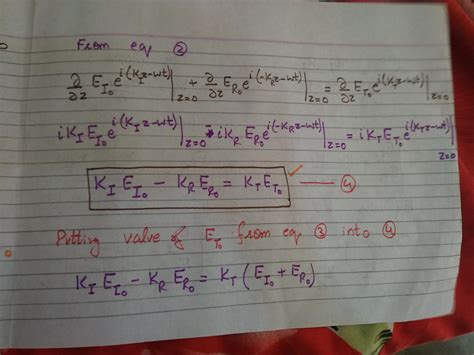 From eq ②
∂/∂z E_I₀ e^{i(K_I z-wt)}|_{z=0} + ∂/∂z E_R₀ e^{i(-K_R z-wt)}|_{z=0} = ∂/∂z E_T₀ e^{i(K_T z-wt)}|_{z=0}
iK_I E_I₀ e^{i(K_I z-wt)}|_{z=0} - iK_R E_R₀ e^{i(-K_R z-wt)}|_{z=0} = iK_T E_T₀ e^{i(K_T z-wt)}|_{z=0}
K_I E_I₀ - K_R E_R₀ = K_T E_T₀ — ④
Putting value of E_T₀ from eq ③ into ④
K_I E_I₀ - K_R E_R₀ = K_T (E_I₀ + E_R₀)